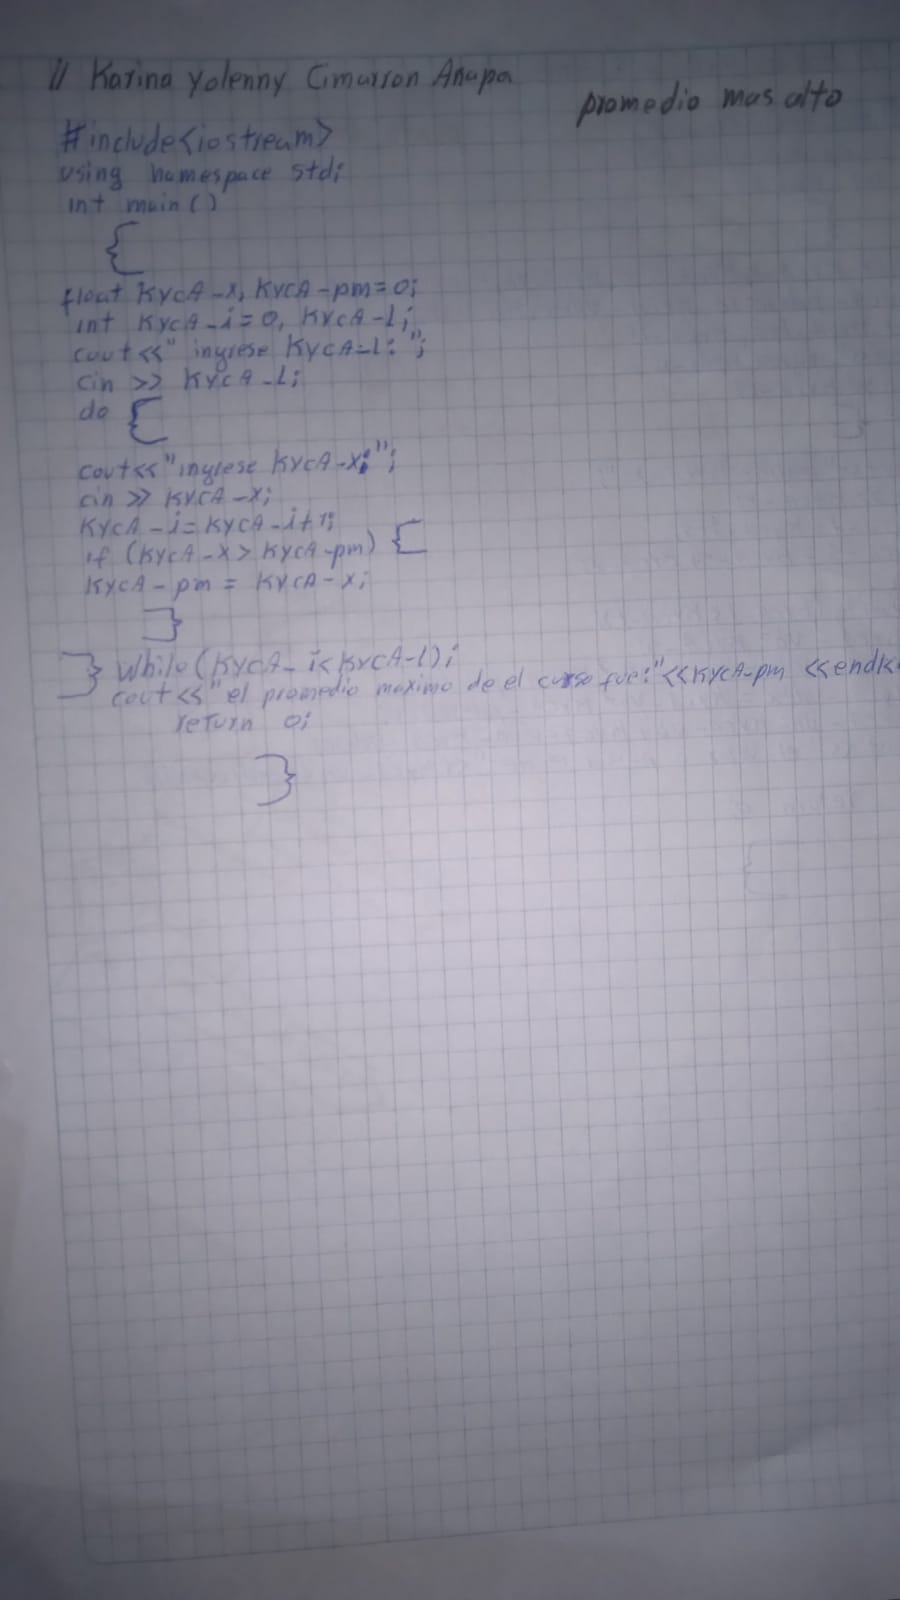 // Karina Yolenny Cimarron Añapa
promedio mas alto
#include<iostream>
using namespace std;
int main()
{
float KYCA-x, KYCA-pm=0;
int KYCA-i=0, KYCA-l;
cout<<" ingrese KYCA-l: ";
cin >> KYCA-l;
do {
cout<<"ingrese KYCA-x:";
cin >> KYCA-x;
KYCA-i=KYCA-i+1;
if (KYCA-x> KYCA-pm) {
KYCA-pm = KYCA-x;
}
} while(KYCA-i<KYCA-l);
cout<<"el promedio maximo de el curso fue:"<<KYCA-pm <<endl<
return 0;
}